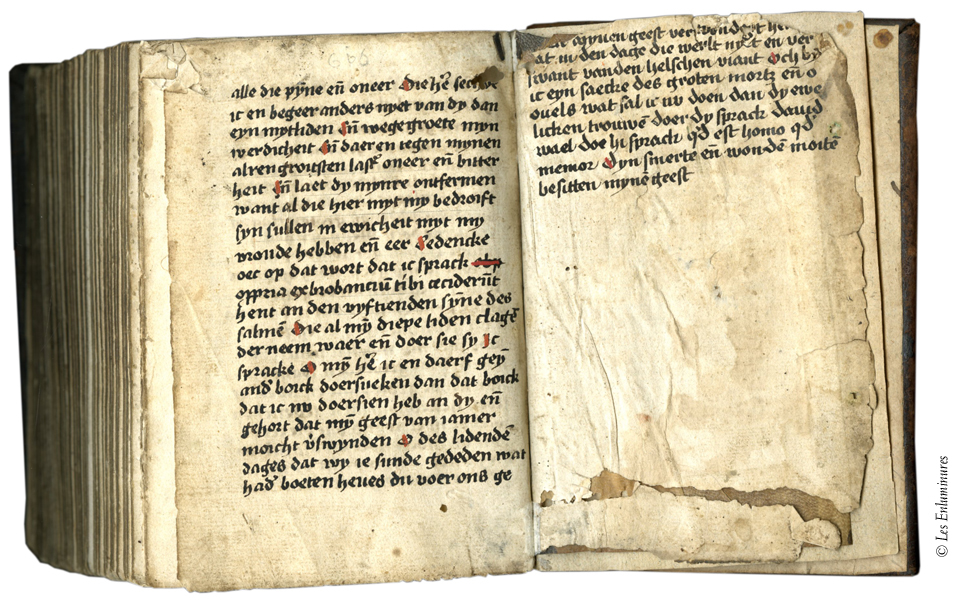 alle die pyne en̄ oneer die hr̄e
ic en begeer anders nyet van dy dan
eyn mytliden En̄ wege groete myn
werdicheit En̄ daer en tegen mynen
alrengroitsten last oneer en̄ bitter
heit En̄ laet dy mynre ontfermen
want al die hier myt my bedroift
syn sullen in ewicheit myt my
vronde hebben en̄ eer Gedencke
oec op dat wort dat ic sprack
oppria exbrobanciū tibi ceciderūt
hent an den vyftienden syne des
salmē Die al my diepe liden clagē
der neem waer en̄ doer sie sy Ic
spracke O my hr̄e ic en daerf gey
and' boick doersueken dan dat boick
dat ic nv doersien heb an dy en̄
gehort dat my geest van iamer
moicht v'swynden O des lidendē
dages dat wy ie sunde gededen wat
had' boeten heues du voer ons ge
mynen geest
at in den dage die werlt nyet en ver
want vanden helschen viant Och
ic eyn saecke des groten mortz en̄ o
ouels wat sal ic uv doen dan dy ewe
licken trouwē doer dy sprack dauid
wael doe hi sprack qd est homo qd
memor Dyn smerte en̄ wondē moitē
besitten mynē geest
© Les Enluminures